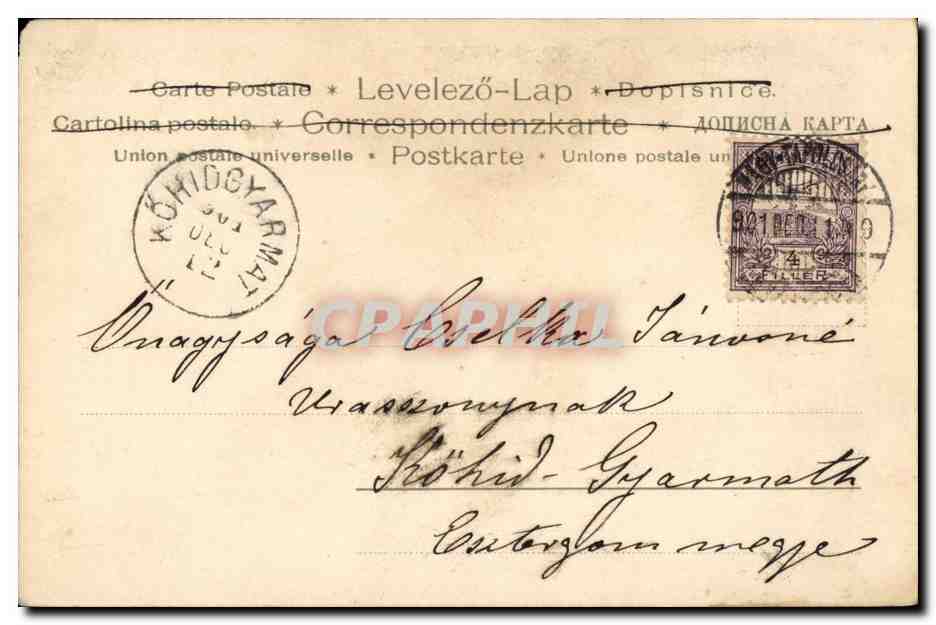 Carte Postale * Levelező-Lap * Dopisnice.
Cartolina postale. * Correspondenzkarte * ДОПИСНА КАРТА
Union postale universelle * Postkarte * Unione postale un
KŐHIDGYARMAT
901
DEC
12
NAGY-TAPOLCSÁNY
901 DEC
4
FILLÉR
CPAPHIL
Őnagysága Cselka Jánosné
Uraszonynak
Kőhid-Gyarmath
Esztergom megye